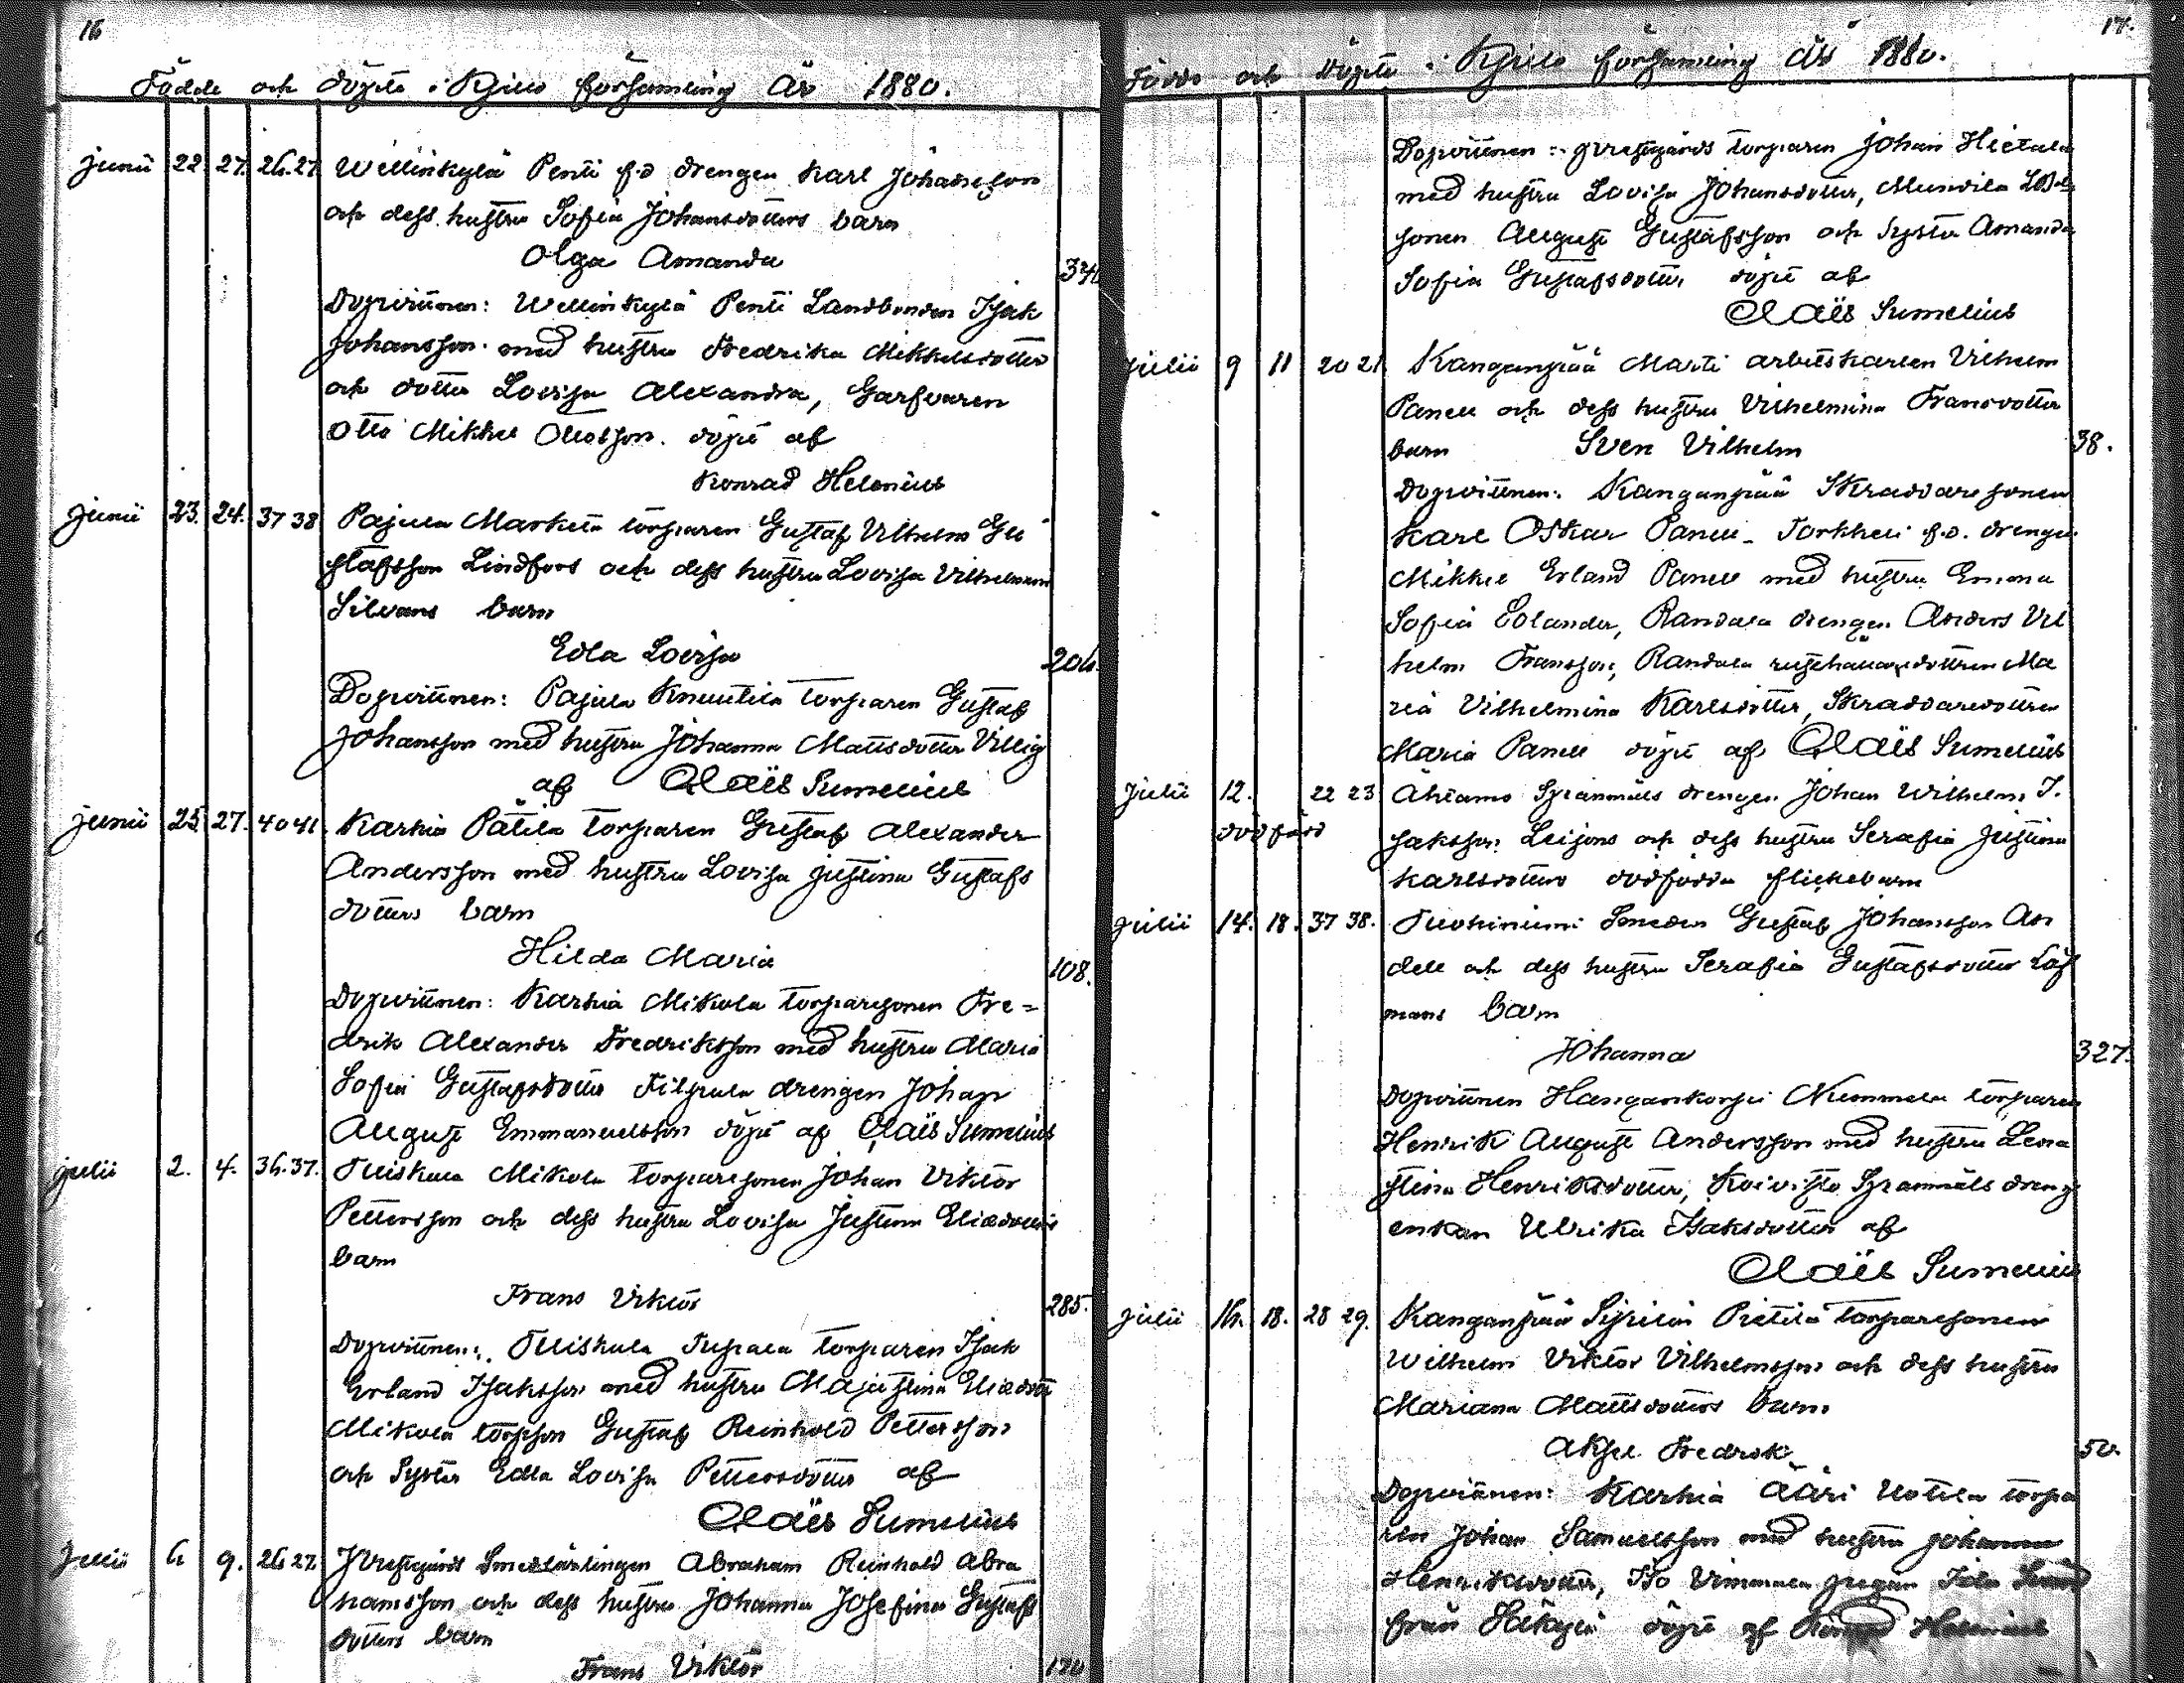 16
Födde och döpte i Kjulo församling År 1880.
junii 22 27. 26.27 Wellinkylä Penti f.d drengen Karl Johansson
och dess hustru Sofia Johansdotters barn
Olga Amanda
Dopvittnen: Wellinkylä Penti Landbonden Isak
Johansson med hustru Fredrika Mikkelsdotter
och dotter Lovisa Alexandra, Garfvaren
Otto Mikkel Ottosson. döpt af
Konrad Helenius
junii 23. 24. 37 38 Pajula Marketa torparen Gustaf Vilhelm Gu
stafsson Lindfors och dess hustru Lovisa Vilhelmina
Silvans barn
Edla Lovisa
206.
Dopvittnen: Pajula Knuutila torparen Gustaf
Johansson med hustru Johanna Mattsdotter Villig
af Claës Sumelius
junii 25 27. 40 41. Karhia Pätila torparen Gustaf Alexander
Andersson med hustru Lovisa Justina Gustafs
dotters barn
Hilda Maria
108.
Dopvittnen: Karhia Mikola torparesonen Fre=
drik Alexander Fredriksson med hustru Maria
Sofia Gustafsdotter drengen Johan
August Emmanuelsson döpt af Claës Sumelius
julii 2. 4. 36.37. Tuiskula Mikola torparesonen Johan Viktor
Pettersson och dess hustru Lovisa Justina Eliedotters
barn
Frans Viktor
285.
Dopvittnen: Tuiskula Tupala torparen Isak
Erland Isaksson med hustru Maja Stina Eliedotter
Mikola torpson Gustaf Reinhold Pettersson
och Syster Edla Lovisa Pettersdotter af
Claës Sumelius
Julii 6 9. 26 27. Prestgårds Smedlärlingen Abraham Reinhold Abra
hamsson och dess hustru Johanna Josefina Gustafs
dotters barn
Frans Viktor
17.
Födde och döpte i Kjulo församling År 1880.
Dopvittnen: prestgårds torparen Johan Hietala
med hustru Lovisa Johansdotter,
sonen August Gustafsson och syster Amanda
Sofia Gustafsdotter döpt af
Claës Sumelius
Julii 9 11 20 21. Kanganpää Marti arbetskarlen Vilhelm
Panell och dess hustru Vilhelmina Fransdotter
barn Sven Vilhelm
38.
Dopvittnen: Kanganpää Skraddaresonen
Karl Oskar Panell Torkkeli f.d. drengen
Mikkel Erland Panell med hustru Emma
Sofia Eolander, Randala drengen Anders Vil
helm Fransson, Randala dottren Ma
ria Vilhelmina Karlsdotter, Skraddaredottren
Maria Panell döpt af Claës Sumelius
Julii 12. 22 23 Spannmåls drengen Johan Wilhelm I
dödfödd
saksson Leijons och dess hustru Serafia Justina
Karlsdotters dödfödda flickebarn
Julii 14. 18. 37 38. Tuohiniemi Smeden Gustaf Johansson An
dell och dess hustru Serafia Gustafsdotter Löf
mans barn
Johanna
327.
Dopvittnen Hangankorpi Nummela torparen
Henrik August Andersson med hustru Lena
Stina Henriksdotter, Koivisto Spannmåls dreng
enkan Ulrika Isaksdotter af
Claës Sumelius
Julii 16. 18. 28 29. Kanganpää Sipilä Pietilä torparesonen
Wilhelm Viktor Vilhelmsson och dess hustru
Mariana Mattsdotters barn
Aksel Fredrik
50.
Dopvittnen: Karhia Ääri Uotila torpa
ren Johan Samuelsson med hustru Johanna
Henriksdotter, Iso Vimmala pigan Ida
från döpt af Konrad Helenius